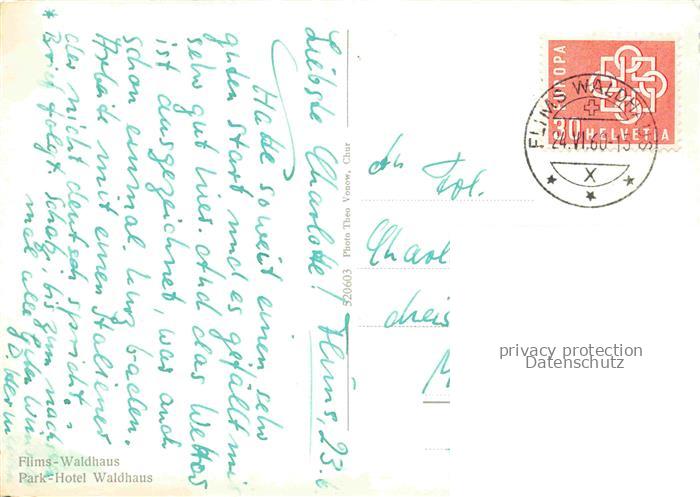 Flims, 23.6.
Liebste Charlotte!
Hatte soweit einen sehr
guten start und es gefällt mir
sehr gut hier. Auch das Wetter
ist ausgezeichnet, war auch
schon einmal kurz baden.
Arbeite mit einem Italiener
der nicht deutsch spricht.
* Brief folgt schatzi, bis zum nächsten
mal alle guten
An Frl.
Charl
dreis
M
520603 Photo Theo Vonow, Chur
EUROPA
30 HELVETIA
FLIMS WALDHAUS
24.VI.60.-15
X
privacy protection
Datenschutz
Flims-Waldhaus
Park-Hotel Waldhaus